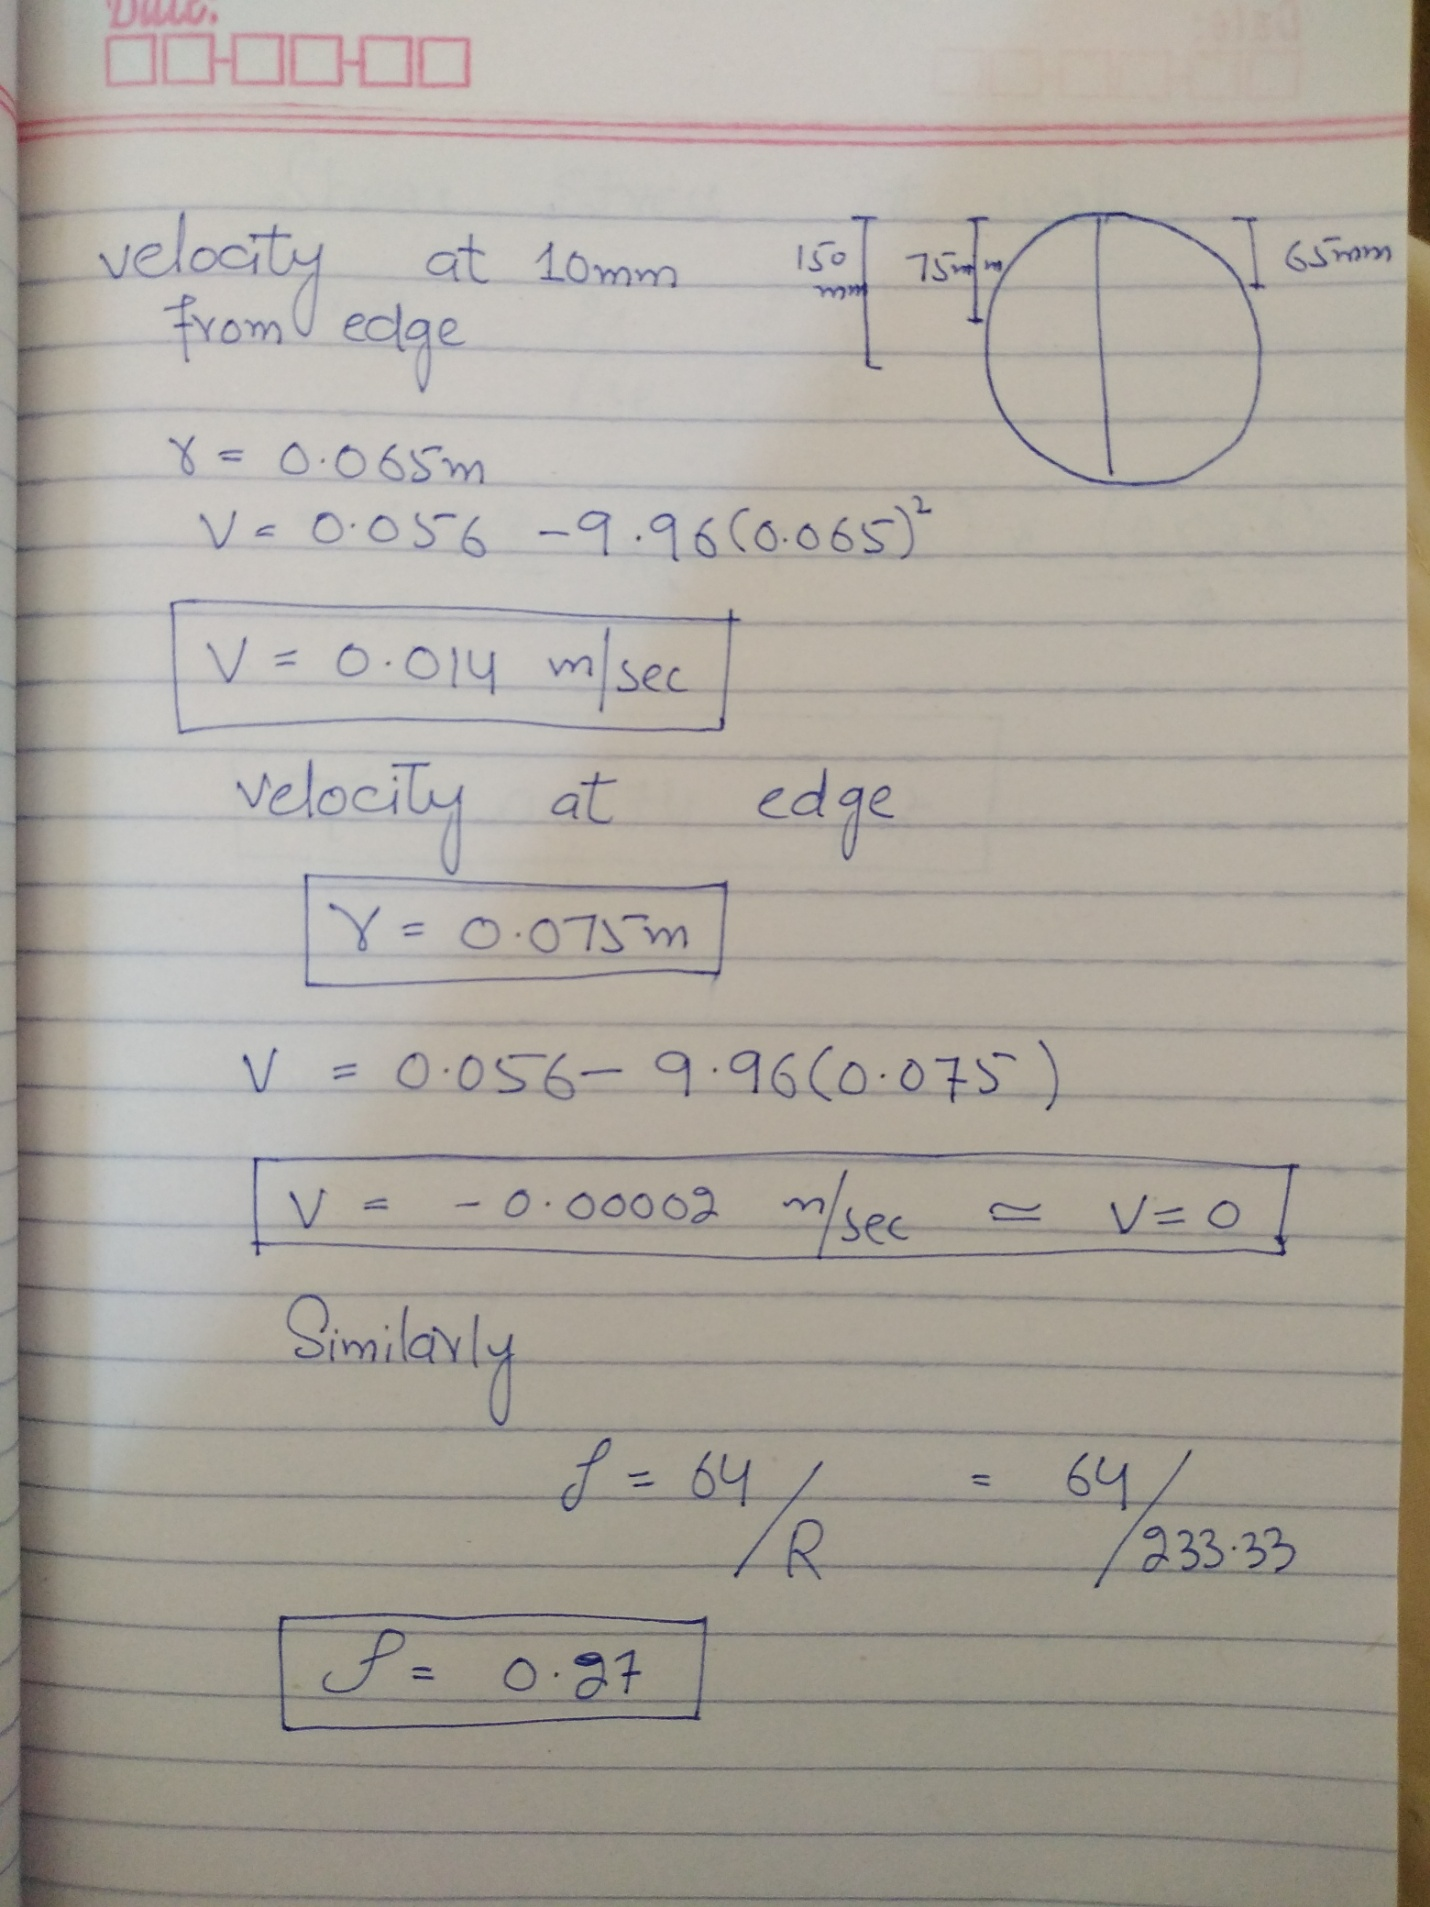 Date:
velocity at 10mm
from edge
150
mm
75mm
65mm
r = 0.065m
V = 0.056 - 9.96(0.065)²
V = 0.014 m/sec
velocity at edge
r = 0.075m
V = 0.056 - 9.96(0.075)
V = -0.00002 m/sec ≃ V=0
Similarly
f = 64/R = 64/233.33
f = 0.27